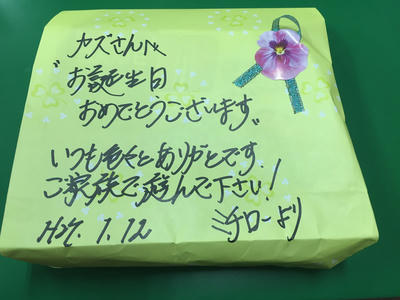 カズさんへ
"お誕生日
おめでとうございます"
いつも色々とありがとです
ご家族で遊んで下さい!
H27.1.12
ミチローより